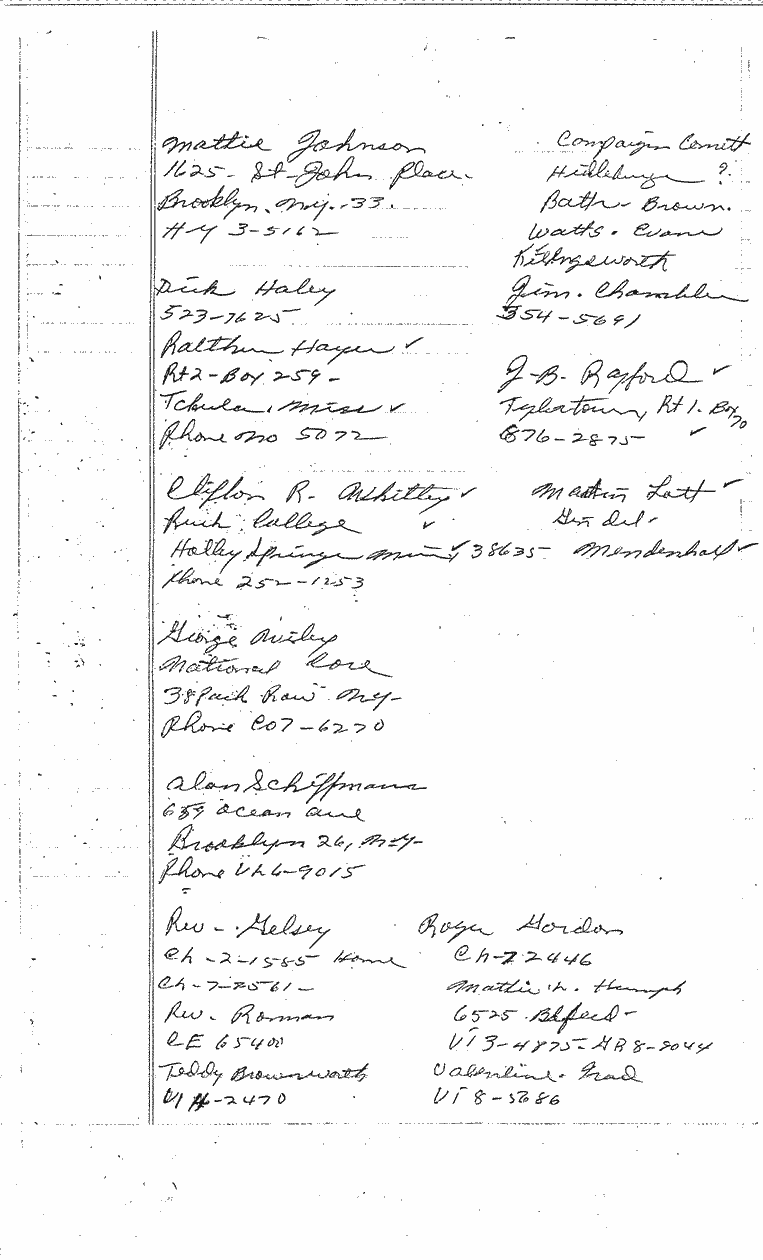 Mattie Johnson
1625 - St-John Place.
Brooklyn. N.Y. 33.
H-Y 3-5162
Dick Haley
523-7625
Ralthus Hayes ✓
Rt 2 - Box 259 -
Tchula, Miss ✓
Phone no 5072
Clifton R. Whitley ✓
Rush College ✓
Holley Springs Miss, ✓ 38635
Phone 252-1253
George
National Core
38 Park Row N.Y-
Phone CO7-6270
Alan Schiffmann
659 Ocean Ave
Brooklyn 26, N-Y-
Phone UL6-9015
Rev - Gelsey
Ch - 2-1585 Home
Ch-7-2561-
Rev. Roman
CE 65400
Teddy Brownworth
VI 4-2470
Campaign Comitt
?
Bath - Brown.
Watts. Evans
Killingsworth
Jim. Chambler
354-5691
J-B- Rayford ✓
Tylertown, Rt 1. Box 70
876-2875 ✓
Latt ✓
Mendenhall ✓
Roger Gordon
Ch-7 2446
Mattie h. Humph
6525
VI 3-4875-GR 8-9044
Valentine. Grad
VI 8-5686